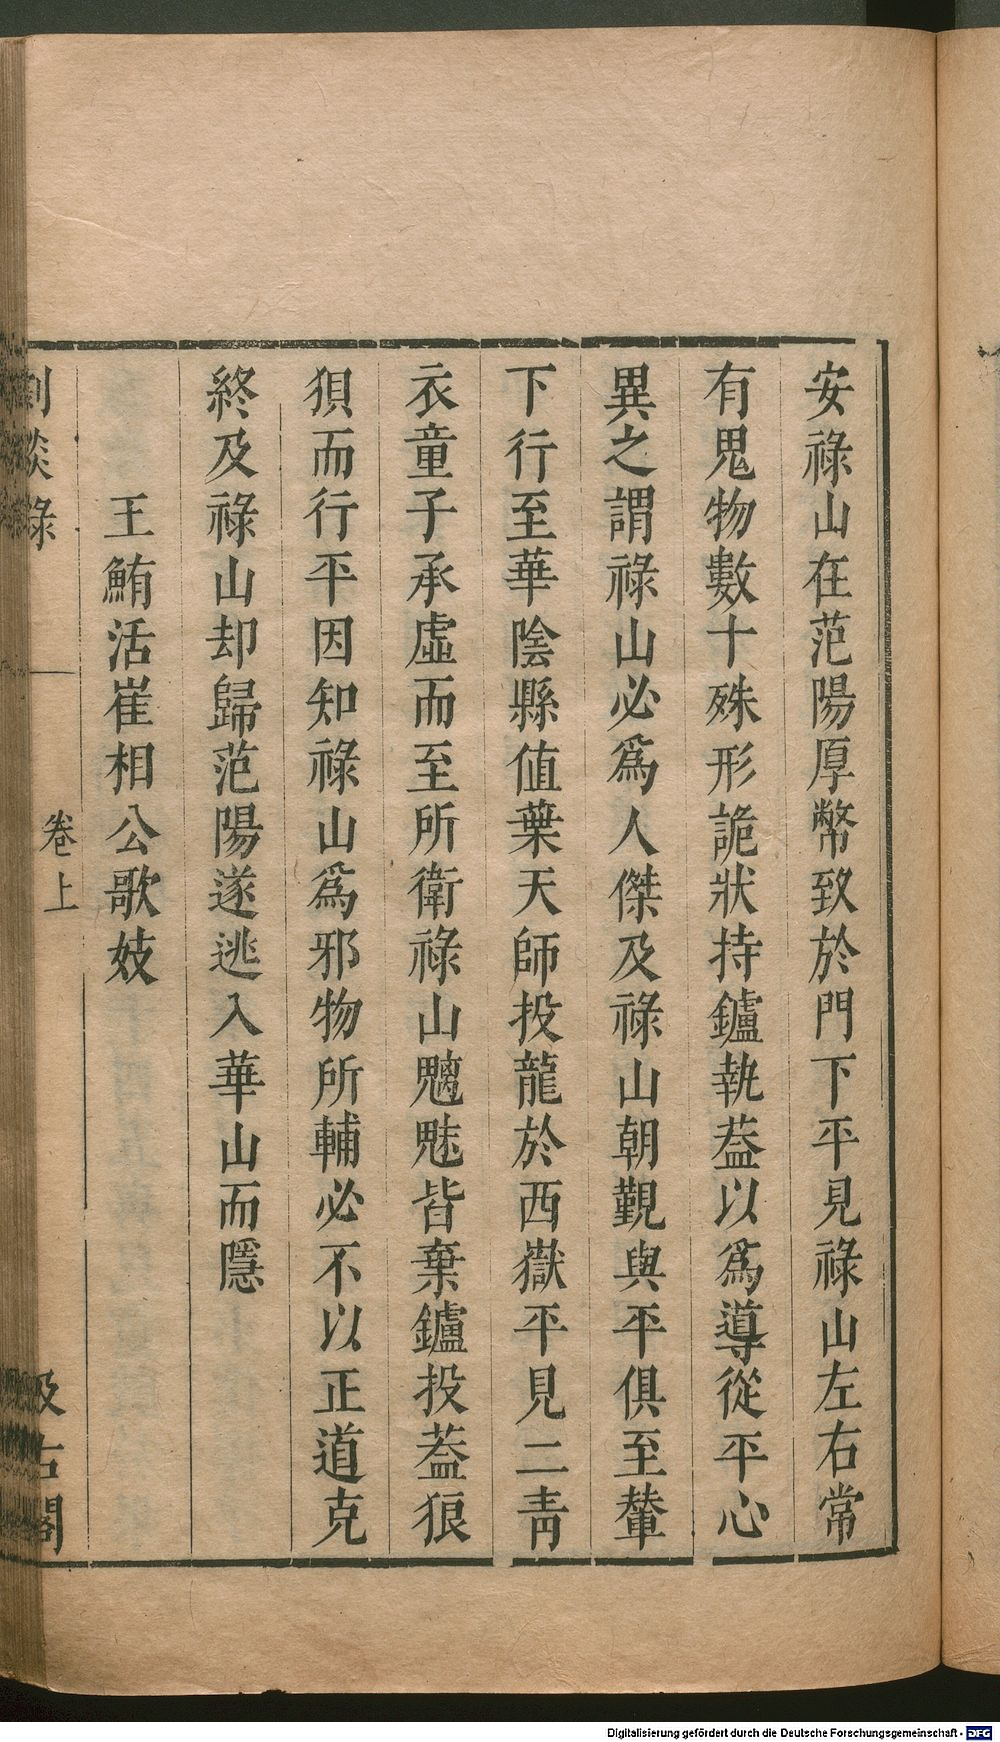 安祿山在范陽厚幣致於門下平見祿山左右常
有鬼物數十殊形詭狀持鑪執葢以爲導從平心
異之謂祿山必爲人傑及祿山朝覲與平俱至輦
下行至華陰縣値葉天師投龍於西嶽平見二靑
衣童子承虛而至所衛祿山魑魅皆棄鑪投葢狼
狽而行平因知祿山爲邪物所輔必不以正道克
終及祿山却歸范陽遂逃入華山而隱
王鮪活崔相公歌妓
劇談錄
卷上
汲古閣
Digitalisierung gefördert durch die Deutsche Forschungsgemeinschaft - DFG